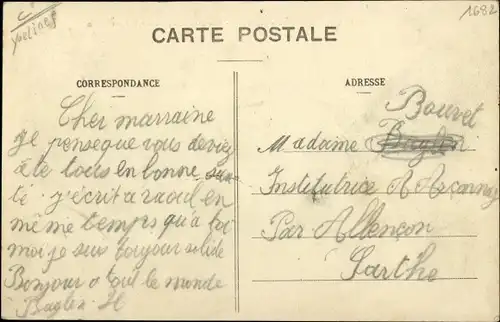 Yvelines
1682
CARTE POSTALE
CORRESPONDANCE
Cher marraine
je penseque vous deviez
ête tous en bonne san
té j'écrit a raoul en
même temps qu'a toi
moi je suis toujour solide
Bonjour a tout le monde
Baglin H
ADRESSE
Bouvet
Madame Baglin
Institutrice A Arçonnay
Par Allençon
Sarthe